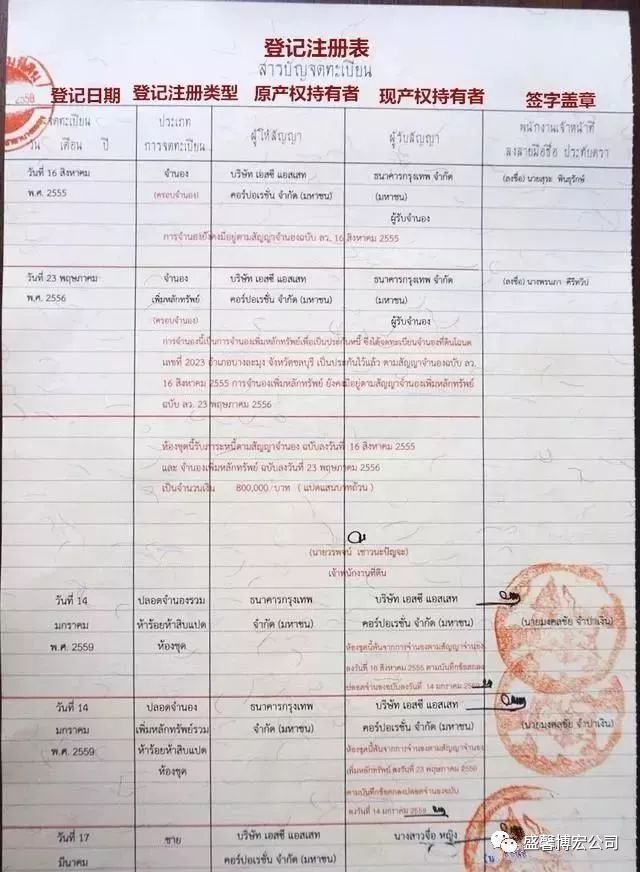 登记注册表
สารบัญจดทะเบียน
登记日期 登记注册类型 原产权持有者 现产权持有者 签字盖章
2558
จดทะเบียน ประเภท ผู้ให้สัญญา ผู้รับสัญญา พนักงานเจ้าหน้าที่
วัน เดือน ปี การจดทะเบียน ลงลายมือชื่อ ประทับตรา
วันที่ 16 สิงหาคม จำนอง บริษัท เอสซี แอสเสท ธนาคารกรุงเทพ จำกัด (ลงชื่อ) นายสุระ พินธุรักษ์
พ.ศ. 2555 (ครอบจำนอง) คอร์ปอเรชั่น จำกัด (มหาชน) (มหาชน)
ผู้รับจำนอง
การจำนองยังคงมีอยู่ตามสัญญาจำนองฉบับ ลว. 16 สิงหาคม 2555
วันที่ 23 พฤษภาคม จำนอง บริษัท เอสซี แอสเสท ธนาคารกรุงเทพ จำกัด (ลงชื่อ) นางพรนภา คีรีทวีป
พ.ศ. 2556 เพิ่มหลักทรัพย์ คอร์ปอเรชั่น จำกัด (มหาชน) (มหาชน)
(ครอบจำนอง) ผู้รับจำนอง
การจำนองนี้เป็นการจำนองเพิ่มหลักทรัพย์เพื่อเป็นประกันหนี้ ซึ่งได้จดทะเบียนจำนองที่ดินโฉนด
เลขที่ 2023 อำเภอบางละมุง จังหวัดชลบุรี เป็นประกันไว้แล้ว ตามสัญญาจำนองฉบับ ลว.
16 สิงหาคม 2555 การจำนองเพิ่มหลักทรัพย์ ยังคงมีอยู่ตามสัญญาจำนองเพิ่มหลักทรัพย์
ฉบับ ลว. 23 พฤษภาคม 2556
ห้องชุดนี้รับภาระหนี้ตามสัญญาจำนอง ฉบับลงวันที่ 16 สิงหาคม 2555
และ จำนองเพิ่มหลักทรัพย์ ฉบับลงวันที่ 23 พฤษภาคม 2556
เป็นจำนวนเงิน 800,000 บาท ( แปดแสนบาทถ้วน )
(นายวรพจน์ เชาวนะปัญจะ)
เจ้าพนักงานที่ดิน
วันที่ 14 ปลอดจำนองรวม ธนาคารกรุงเทพ บริษัท เอสซี แอสเสท
มกราคม ห้าร้อยห้าสิบแปด จำกัด (มหาชน) คอร์ปอเรชั่น จำกัด (มหาชน) (นายมงคลชัย จำปาเงิน)
พ.ศ. 2559 ห้องชุด ห้องชุดนี้พ้นจากการจำนองตามสัญญาจำนอง
ลงวันที่ 16 สิงหาคม 2555 ตามบันทึกข้อตกลง
ปลอดจำนองฉบับลงวันที่ 14 มกราคม 2559
วันที่ 14 ปลอดจำนอง ธนาคารกรุงเทพ บริษัท เอสซี แอสเสท
มกราคม เพิ่มหลักทรัพย์รวม จำกัด (มหาชน) คอร์ปอเรชั่น จำกัด (มหาชน) (นายมงคลชัย จำปาเงิน)
พ.ศ. 2559 ห้าร้อยห้าสิบแปด ห้องชุดนี้พ้นจากการจำนองตามสัญญาจำนอง
ห้องชุด เพิ่มหลักทรัพย์ ลงวันที่ 23 พฤษภาคม 2556
ตามบันทึกข้อตกลงปลอดจำนองฉบับ
ลงวันที่ 14 มกราคม 2559
วันที่ 17 ขาย บริษัท เอสซี แอสเสท นางสาวจื่อ หญิง
มีนาคม คอร์ปอเรชั่น จำกัด (มหาชน)
盛馨博宏公司